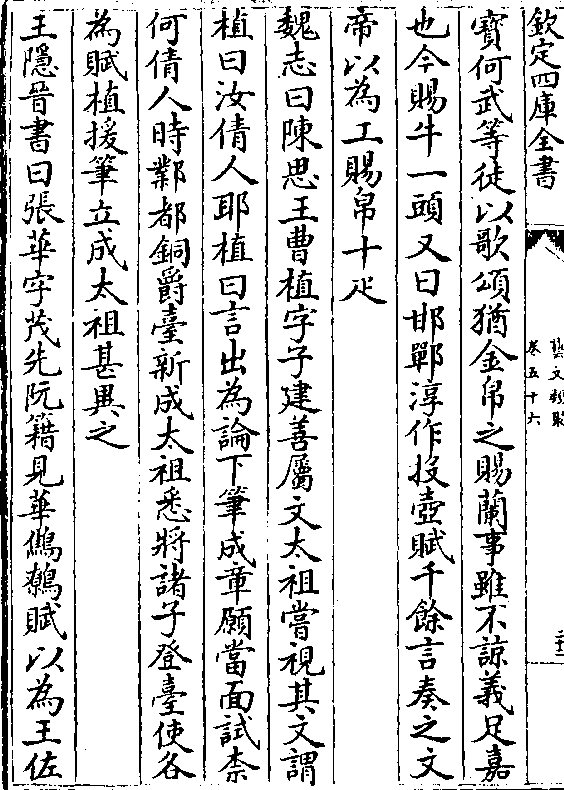 欽定四庫全書
藝文類聚
卷五十六
寳何武等徒以歌頌猶金帛之賜蘭事雖不諒義足嘉
也今賜牛一頭又曰邯鄲淳作投壺賦千餘言奏之文
帝以為工賜帛十疋
魏志曰陳思王曹植字子建善屬文太祖嘗視其文謂
植曰汝倩人耶植曰言出為論下筆成章願當面試柰
何倩人時鄴都銅爵臺新成太祖悉將諸子登臺使各
為賦植援筆立成太祖甚異之
王隱晉書曰張華字茂先阮籍見華鷦鷯賦以為王佐